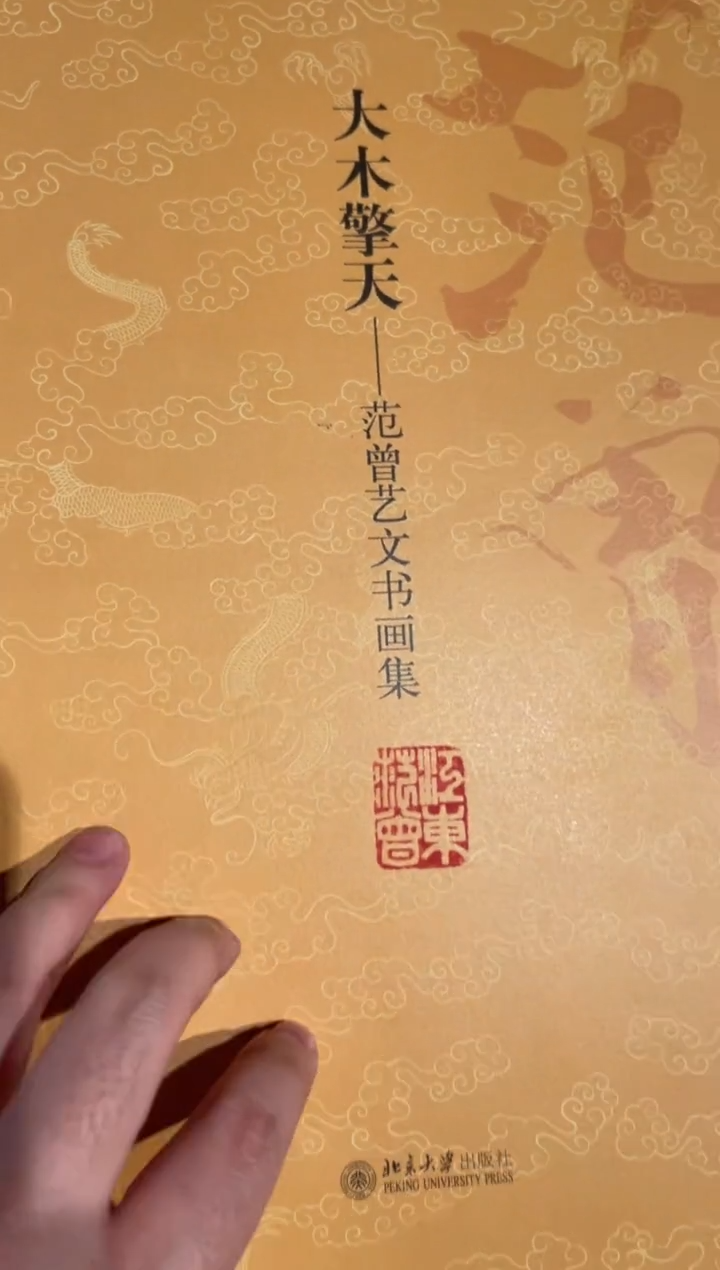 大木擎天
——范曾艺文书画集
江東范曾
范曾
北京大学出版社
PEKING UNIVERSITY PRESS